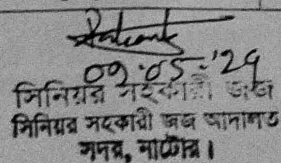 09.05.'24
সিনিয়র সহকারী জজ
সিনিয়র সহকারী জজ আদালত
সদর, নাটোর।